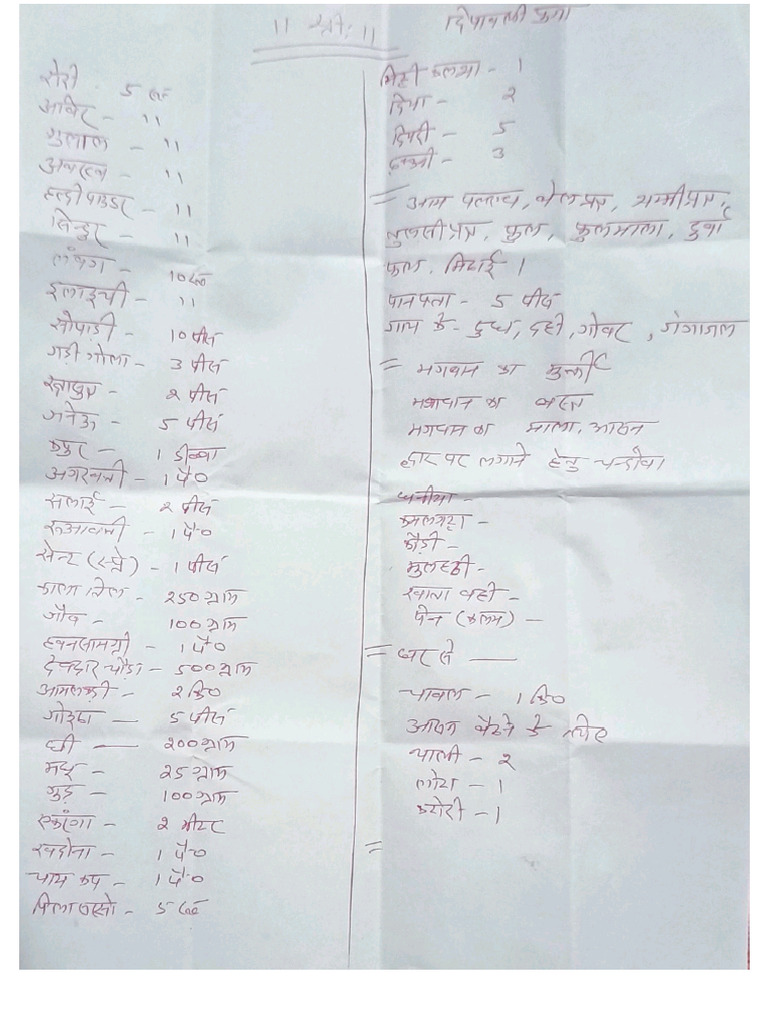 ॥ श्री: ॥
दिपावली पुजा
रोरी - 5 रु॰
अबिर - ॥
गुलाल - ॥
अबरख - ॥
हल्दी पाउडर - ॥
सिन्दुर - ॥
लंवग - 10 रु॰
इलाइची - ॥
सोपाड़ी - 10 पीस
गड़ी गोला - 3 पीस
रक्षासुत्र - 2 पीस
जनेऊ - 5 पीस
कपुर - 1 डीब्बा
अगरबत्ती - 1 पै०
सलाई - 2 पीस
रुआबत्ती - 1 पै०
सेन्ट (स्प्रे) - 1 पीस
काला तिल - 250 ग्राम
जौव - 100 ग्राम
हवनसामग्री - 1 पै०
देवदार धौड़ा - 500 ग्राम
आमलकड़ी - 2 कि०
गोइठा - 5 पीस
घी - 200 ग्राम
मध - 25 ग्राम
गुड़ - 100 ग्राम
एकरंगा - 2 मीटर
खदोना - 1 पै०
चाय कप - 1 पै०
पिला सरसो - 5 रु॰
मिट्टी कलश - 1
दिया - 2
दियरी - 5
ढकनी - 3
= आम पल्लव, बेलपत्र, शम्मीपत्र,
तुलसीपत्र, फुल, फुलमाला, दुर्वा
फल, मिठाई ।
पानपत्ता - 5 पीस
गाय के - दुध, दही, गोबर, गंगाजल
= भगवान का मुर्ती
भगवान का वस्त्र
भगवान का माला, आसन
द्वार पर लगाने हेतु चन्डोवा
धनीया -
कमलगट्टा -
कौड़ी -
मुलहठी -
खाता बही -
पेन (कलम) -
= घर से —
चावल - 1 कि०
आसन बैठने के लिए
थाली - 2
लोटा - 1
कटोरी - 1
=